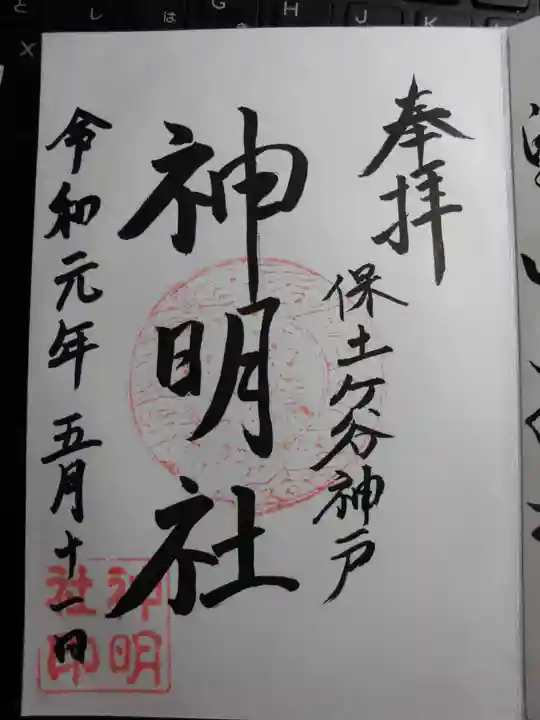 奉拝
保土ケ谷神戸
神明社
令和元年五月十一日
神明
社印
と
し
は
き
G
H
J
K
L
X